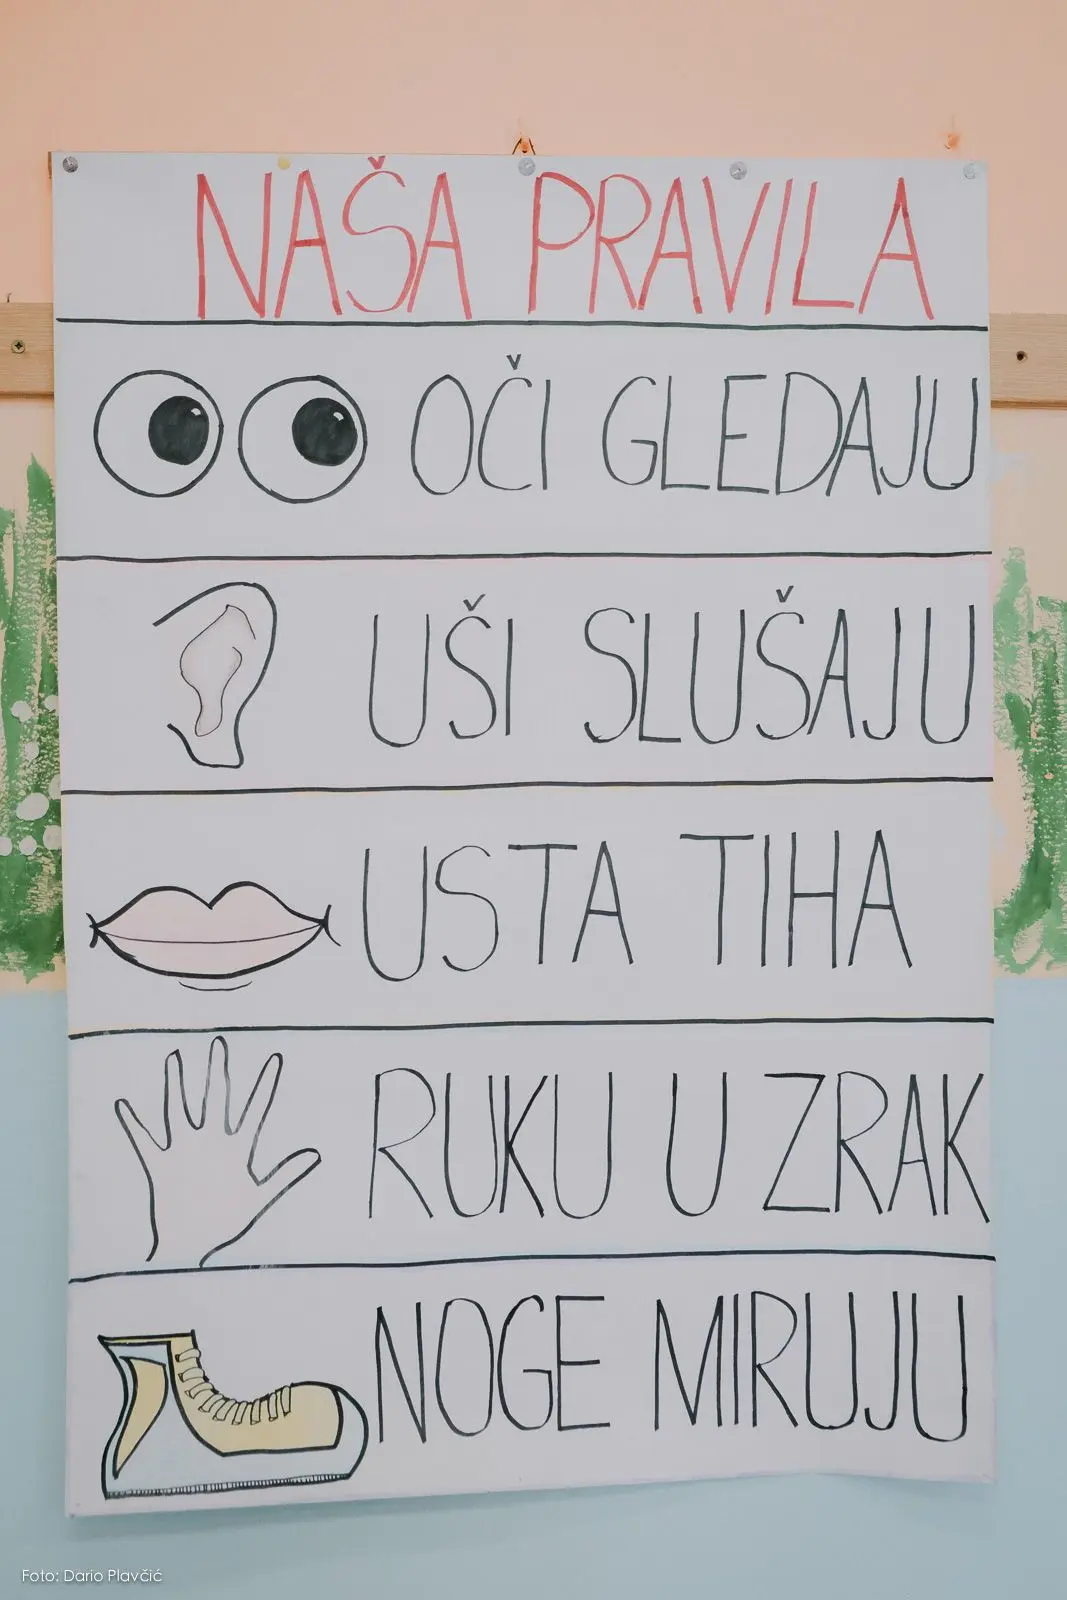 NAŠA PRAVILA
OČI GLEDAJU
UŠI SLUŠAJU
USTA TIHA
RUKU U ZRAK
NOGE MIRUJU
Foto: Dario Plavčić